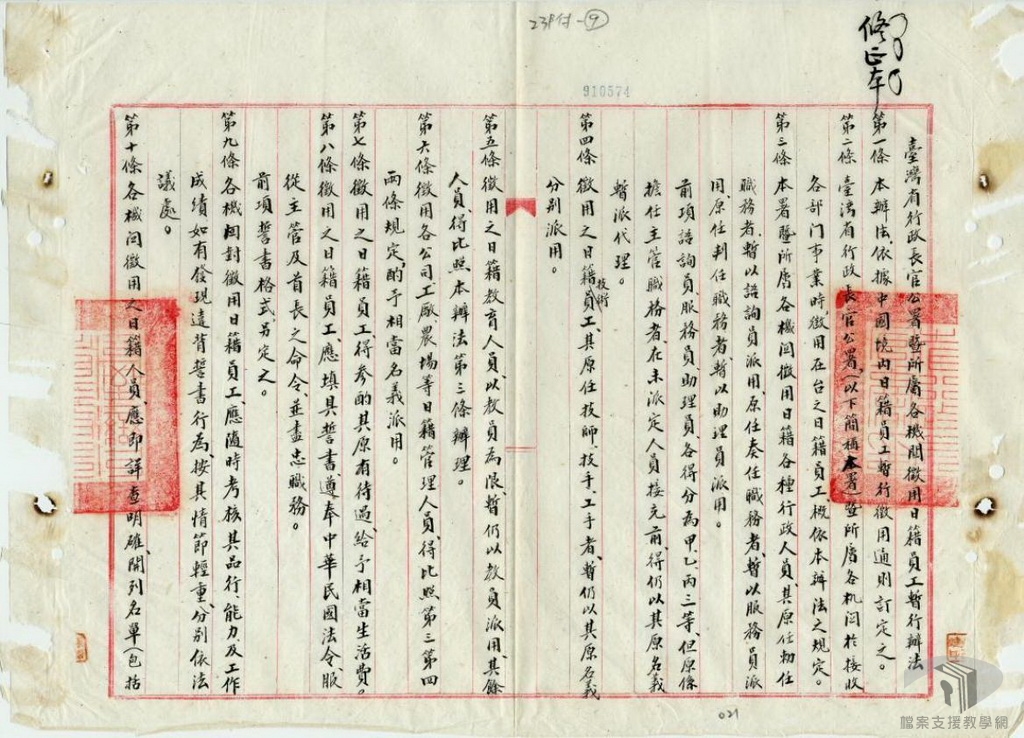 23附-⑨
910574
修正本
臺灣省行政長官公署暨所屬各機關徵用日籍員工暫行辦法
第一條 本辦法依據中國境內日籍員工暫行徵用通則訂定之。
第二條 臺灣省行政長官公署(以下簡稱本署)暨所屬各机関於接收
各部门事業時、徵用在台之日籍員工概依本辦法之規定。
第三條 本署暨所屬各機関徵用日籍各種行政人員、其原任勅任
職務者、暫以諮詢員派用、原任奏任職務者、暫以服務員派
用、原任判任職務者、暫以助理員派用。
前項諮詢員服務員、助理員、各得分為甲、乙、丙三等、但原係
擔任主管職務者、在未派定人員接充前、得仍以其原名義
暫派代理。
第四條 徵用之日籍技術員工、其原任技師、技手、工手者、暫仍以其原名義
分別派用。
第五條 徵用之日籍教育人員、以教員為限、暫仍以教員派用、其餘
人員得比照本辦法第三條辦理。
第六條 徵用各公司、工廠、農場等日籍管理人員、得比照第三第四
兩條規定、酌予相當名義派用。
第七條 徵用之日籍員工得參酌其原有待遇、給予相當生活費。
第八條 徵用之日籍員工、應填具誓書、遵奉中華民國法令、服
從主管及首長之命令、並盡忠職務。
前項誓書格式、另定之。
第九條 各機関對徵用日籍員工、應隨時考核其品行、能力、及工作
成績如有發現違背誓書行為、按其情節輕重、分別依法
議處。
第十條 各機関徵用之日籍人員、應即詳查明確、開列名單(包括
021
檔案支援教學網